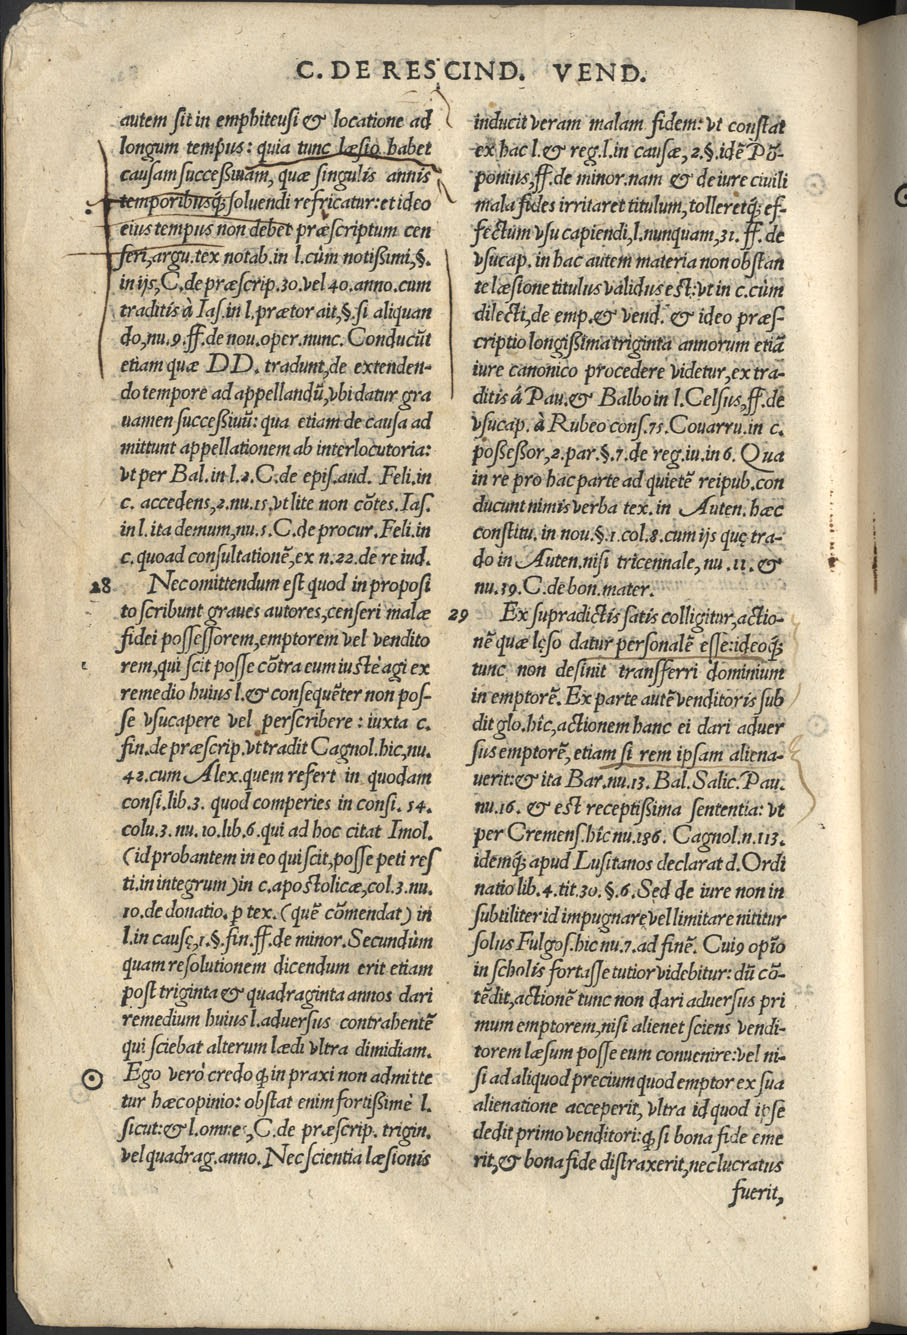 C. DE RESCIND. VEND.
autem ſit in emphiteuſi & locatione ad
longum tempus: quia tunc læſio habet
cauſam ſucceßiuam, quæ ſingulis annis
temporibusq́; ſoluendi refricatur: et ideo
eius tempus non debet præſcriptum cen
ſeri, argu. tex notab. in l. cùm notißimi, §.
in ijs, C. de præſcrip. 30. vel 40. anno. cum
traditis à Iaſ. in l. prætor ait, §. ſi aliquan
do, nu. 9. ff. de nou. oper. nunc. Conducũt
etiam quæ DD. tradunt, de extenden-
do tempore ad appellandũ, vbi datur gra
uamen ſucceßiuũ: qua etiam de cauſa ad
mittunt appellationem ab interlocutoria:
vt per Bal. in l. 2. C. de epiſ. aud. Feli. in
c. accedens, 2. nu. 15. vt lite non cõtes. Iaſ.
in l. ita demum, nu. 5. C. de procur. Feli. in
c. quoad conſultationẽ, ex n. 22. de re iud.
28 Nec omittendum eſt quod in propoſi
to ſcribunt graues autores, cenſeri malæ
fidei poſſeſſorem, emptorem vel vendito
rem, qui ſcit poſſe cõtra eum iuſtè agi ex
remedio huius l. & conſequẽter non poſ-
ſe vſucapere vel perſcribere: iuxta c.
fin. de præſcrip. vt tradit Cagnol. hic, nu.
42. cum Alex. quem refert in quodam
conſi. lib. 3. quod comperies in conſi. 54.
colu. 3. nu. 10. lib. 6. qui ad hoc citat Imol.
(id probantem in eo qui ſcit, poſſe peti reſ
ti. in integrum) in c. apoſtolicæ, col. 3. nu.
10. de donatio. p tex. (quẽ cõmendat) in
l. in cauſę, 1. §. fin. ff. de minor. Secundùm
quam reſolutionem dicendum erit etiam
poſt triginta & quadraginta annos dari
remedium huius l. aduerſus contrahentẽ
qui ſciebat alterum lædi vltra dimidiam.
Ego verò credo q́; in praxi non admitte
tur hæc opinio: obſtat enim fortißimè l.
ſicut: & l. omnes, C. de præſcrip. trigin.
vel quadrag. anno. Nec ſcientia læſionis
inducit veram malam fidem: vt conſtat
ex hac l. & reg. l. in cauſæ, 2. §. idẽ Põ-
ponius, ff. de minor. nam & de iure ciuili
mala fides irritaret titulum, tolleretq́; eſ-
fectum vſucapiendi, l. nunquam, 31. ff. de
vſucap. in hac autem materia non obſtan
te læſione titulus validus eſt: vt in c. cùm
dilecti, de emp. & vend. & ideo præſ-
criptio longißima triginta annorum etiã
iure canonico procedere videtur, ex tra-
ditis á Pau. & Balbo in l. Celſus, ff. de
vſucap. à Rubeo conſ. 75. Couarru. in c.
poßeßor, 2. par. §. 7. de reg. iu. in 6. Qua
in re pro hac parte ad quietẽ reipub. con
ducunt nimis verba tex. in Auten. hæc
conſtitu. in nou. §. 1. col. 8. cum ijs quę tra-
do in Auten. niſi tricennale, nu. 11. &
nu. 19. C. de bon. mater.
29 Ex ſupradictis ſatis colligitur, actio-
nẽ quæ lęſo datur perſonalẽ eſſe: ideoq́;
tunc non deſinit transferri dominium
in emptorẽ. Ex parte autẽ venditoris ſub
dit glo. hîc, actionem hanc ei dari aduer
ſus emptorẽ, etiam ſi rem ipſam aliena-
uerit: & ita Bar. nu. 13. Bal. Salic. Pau.
nu. 16. & eſt receptißima ſententia: vt
per Cremenſ. hîc nu. 186. Cagnol. n. 113.
idemq́; apud Luſitanos declarat d. Ordi
natio lib. 4. tit. 30. §. 6. Sed de iure non in
ſubtiliter id impugnare vel limitare nititur
ſolus Fulgoſ. hic nu. 7. ad finẽ. Cui9 opĩo
in ſcholis fortaſſe tutior videbitur: dũ cõ-
tẽdit, actionẽ tunc non dari aduerſus pri
mum emptorem, niſi alienet ſciens vendi-
torem læſum poſſe eum conuenire: vel ni-
ſi ad aliquod precium quod emptor ex ſua
alienatione acceperit, vltra id quod ipſe
dedit primo venditori: q́; ſi bona fide eme
rit, & bona fide diſtraxerit, nec lucratus
fuerit,